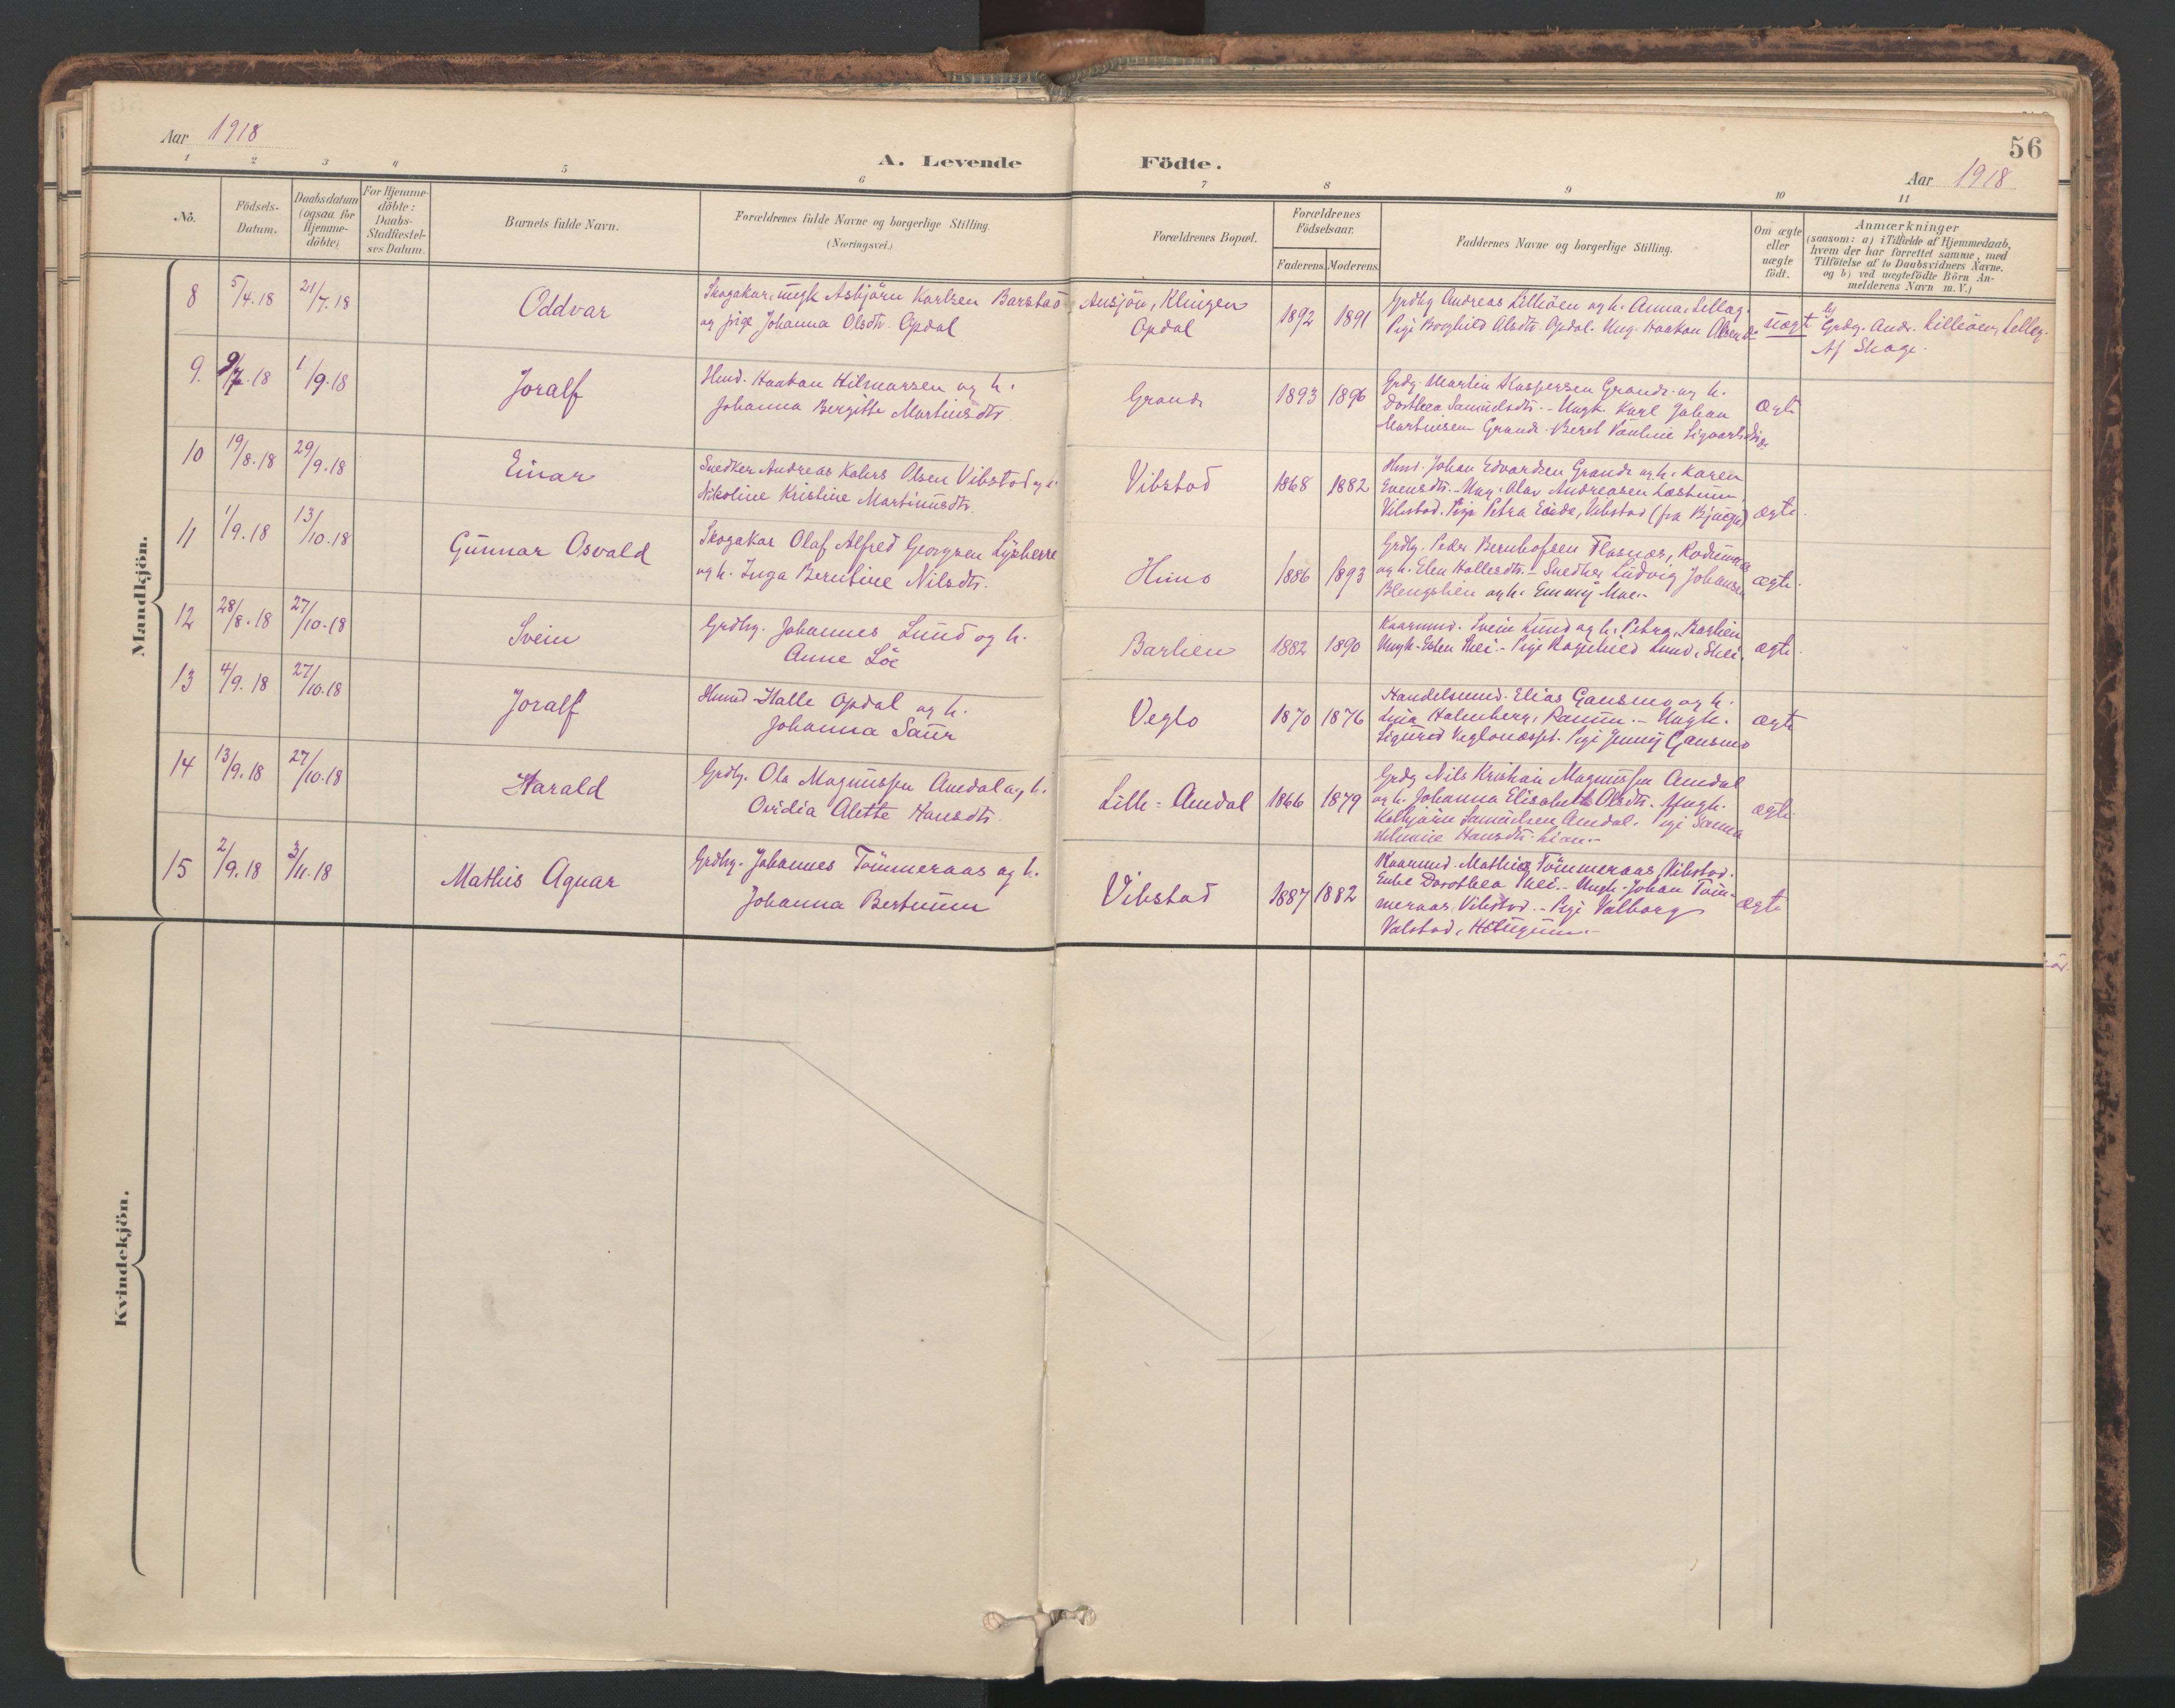 Aar 1918
A. Levende Födte.
56
Aar 1918
1 2 3 4 5 6 7 8 9 10 11
No.
Födsels-
Datum.
Daabsdatum
(ogsaa for
Hjemme-
döbte)
For Hjemme-
döbte:
Daabs-
Stadfæstel-
ses Datum.
Barnets fulde Navn.
Forældrenes fulde Navne og borgerlige Stilling.
(Næringsvei.)
Forældrenes Bopæl.
Forældrenes
Födselsaar.
Faderens. Moderens.
Faddernes Navne og borgerlige Stilling.
Om ægte
eller
uægte
födt.
Anmærkninger
(saasom: a) i Tilfælde af Hjemmedaab,
hvem der har forrettet samme, med
Tilföielse af to Daabsvidners Navne.
og b) ved uægtefödte Börn An-
melderens Navn m. V.)
Mandkjön.
8 5/4.18 21/7.18 Oddvar
Skogskar, ungk Asbjörn Karlsen Barstad
og pige Johanna Olsdtr. Opdal
Ansjöen, Klingen
Opdal
1892 1891
Grdbg Andreas Lilleöen og h. Anna, Selleg.
Pige Borghild Olsdtr. Opdal. Ung. Haakon Olsen
uægt
Grdbg. Andr. Lilleöen, Selleg.
Af Skage.
9. 9/7.18 1/9.18 Joralf
Hmd. Haakon Hilmarsen og h.
Johanna Bergitte Martinsdtr.
Grande
1893 1896
Grdbg. Martin Kaspersen Grande og h.
Dorthea Samuelsdtr. - Ungk. Karl Johan
Martinsen Grande. Beret Pauline Sigvartsdtr
ægte
10 19/8.18 29/9.18 Einar
Snedker Andreas Kolers Olsen Vibstad og h.
Nikoline Kristine Martinusdtr.
Vibstad
1868 1882
Hmd. Johan Edvardsen Grande og h. Karen
Evensdtr. - Ung. Olav Andreasen
Vibstad. Pige Petra Eide, Vibstad (fra Bjugn)
ægte.
11 1/9.18 13/10.18 Gunnar Osvald
Skogskar Olaf Alfred Georgsen Lysberre
og h. Inga Berntine Nilsdtr.
Himo
1886 1893
Grdbg. Peder Bernhofsen Flasnes,
og h. Elen Hallesdtr. - Snedker Ludvig Johansen
Blengslien og h. Emmy Moe. -
ægte.
12 28/8.18 27/10.18 Svein
Grdbg. Johannes Lund og h.
Anne Löe
Barlien
1882 1890
Kaarmd. Svein Lund og h. Petra, Barlien
Ungk. Esten Thei. - Pige Ragnhild Lund,
ægte.
13 4/9.18 27/10.18 Joralf
Hmd. Halle Opdal og h.
Johanna Saur
Veglo
1870 1876
Handelsmd. Elias Gansmo og h.
Lina Holmberg, Ranum. - Ungk.
Sigurd Veglonesset. Pige Jenny Gansmo
ægte
14 13/9.18 27/10.18 Harald
Grdbg. Ole Magnussen Amdal og h.
Ovidia Alette Hansdtr.
Lille=Amdal
1866 1879
Grdbg Nils Kristian Magnussen Amdal
og h. Johanna Elisabeth Olsdtr. Ungk.
Kolbjörn Samuelsen Amdal. Pige Sanna
Helmine Hansdtr. Lian. -
ægte.
15 2/9.18 3/11.18 Mathis Agnar
Grdbg. Johannes Tömmeraas og h.
Johanna Bertnum
Vibstad
1887 1882
Kaarmd. Mathis Tömmeraas, Vibstad.
Enke Dorothea Thei. - Ungk. Johan Töm-
meraas, Vibstad. - Pige Valborg
Valstad, Hötugum. -
ægte
Kvindekjön.